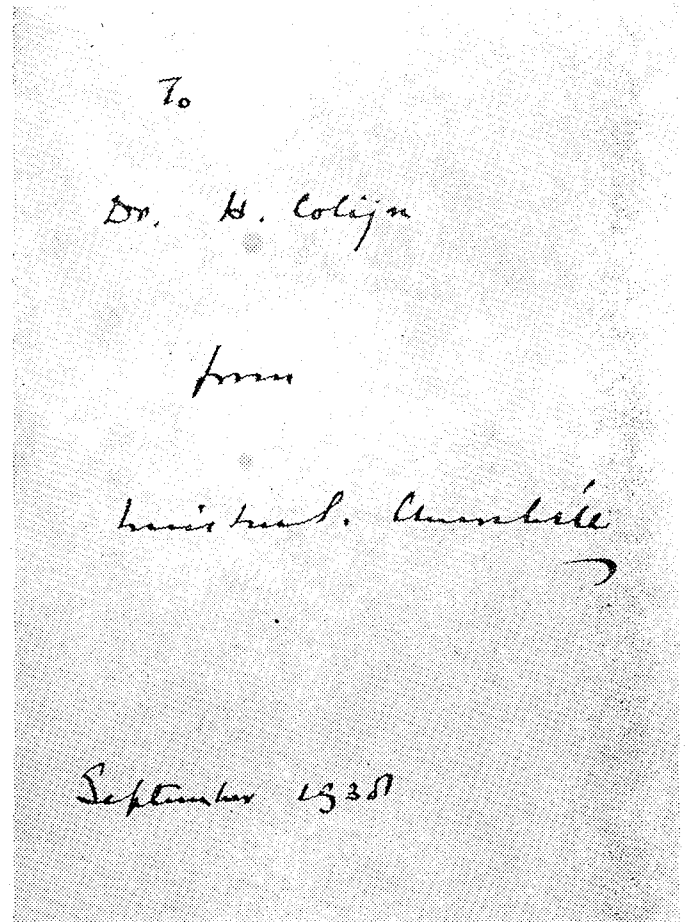 To
Dr. H. Colijn
from
Winston S. Churchill
September 1938